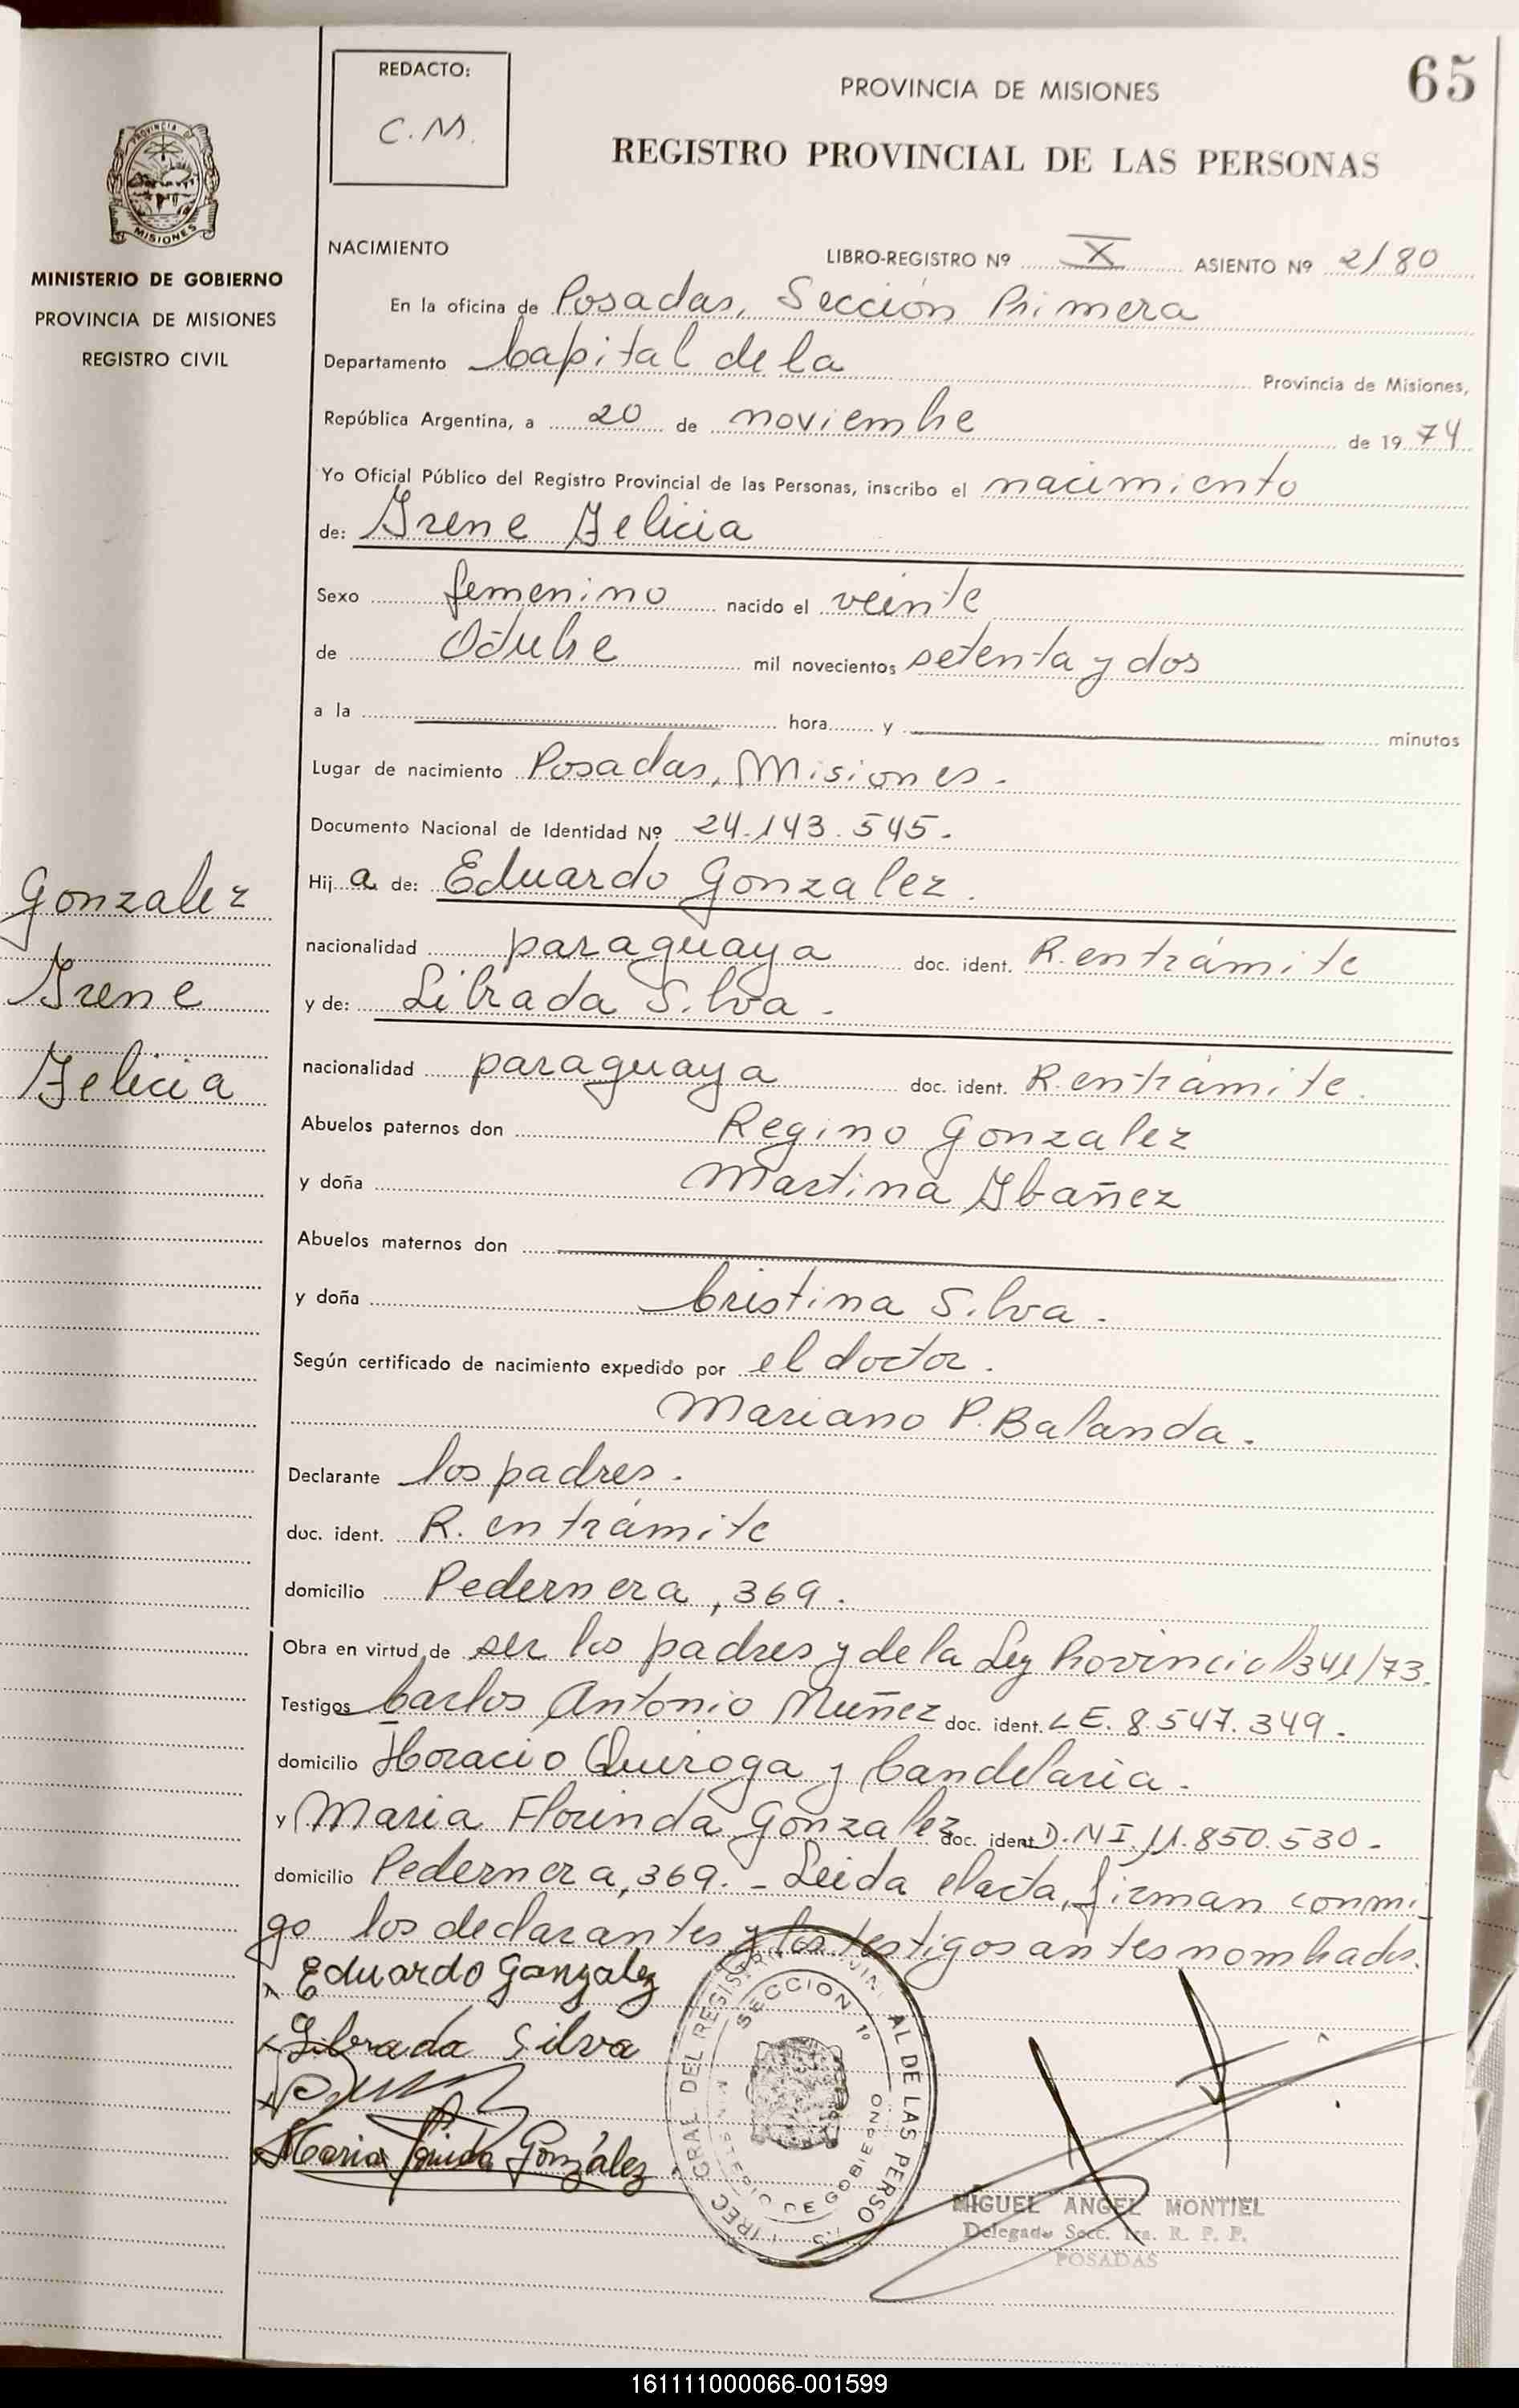 65
REDACTO:
C.M.
PROVINCIA DE MISIONES
REGISTRO PROVINCIAL DE LAS PERSONAS
PROVINCIA DE
MISIONES
MINISTERIO DE GOBIERNO
PROVINCIA DE MISIONES
REGISTRO CIVIL
NACIMIENTO
LIBRO-REGISTRO Nº X ASIENTO Nº 2180
En la oficina de Posadas, Sección Primera
Departamento Capital de la Provincia de Misiones,
República Argentina, a 20 de noviembre de 1974
Yo Oficial Público del Registro Provincial de las Personas, inscribo el nacimiento
de: Irene Felicia
Sexo femenino nacido el veinte
de Octubre mil novecientos setenta y dos
a la hora y minutos
Lugar de nacimiento Posadas, Misiones.
Documento Nacional de Identidad Nº 24.143.545.
Hij a de: Eduardo Gonzalez.
Gonzalez
Irene
Felicia
nacionalidad paraguaya doc. ident. R. en trámite
y de: Librada Silva.
nacionalidad paraguaya doc. ident. R. en trámite.
Abuelos paternos don Regino Gonzalez
y doña Martina Ibañez
Abuelos maternos don
y doña Cristina Silva.
Según certificado de nacimiento expedido por el doctor.
Mariano P. Balanda.
Declarante los padres.
doc. ident. R. en trámite
domicilio Pedernera, 369.
Obra en virtud de ser los padres y de la Ley Provincial 341/73.
Testigos Carlos Antonio Muñez doc. ident. L E. 8.547.349.
domicilio Horacio Quiroga y Candelaria.
y Maria Florinda Gonzalez doc. ident D.N I. 11.850.530.
domicilio Pedernera, 369. - Leida el acta, firman conmi
go los declarantes y los testigos antes nombrados.
Eduardo Gonzalez
Librada Silva
Maria González
SECCION 1º
MIGUEL ANGEL MONTIEL
Delegado Secc. 1ra. R. P. P.
POSADAS
161111000066-001599